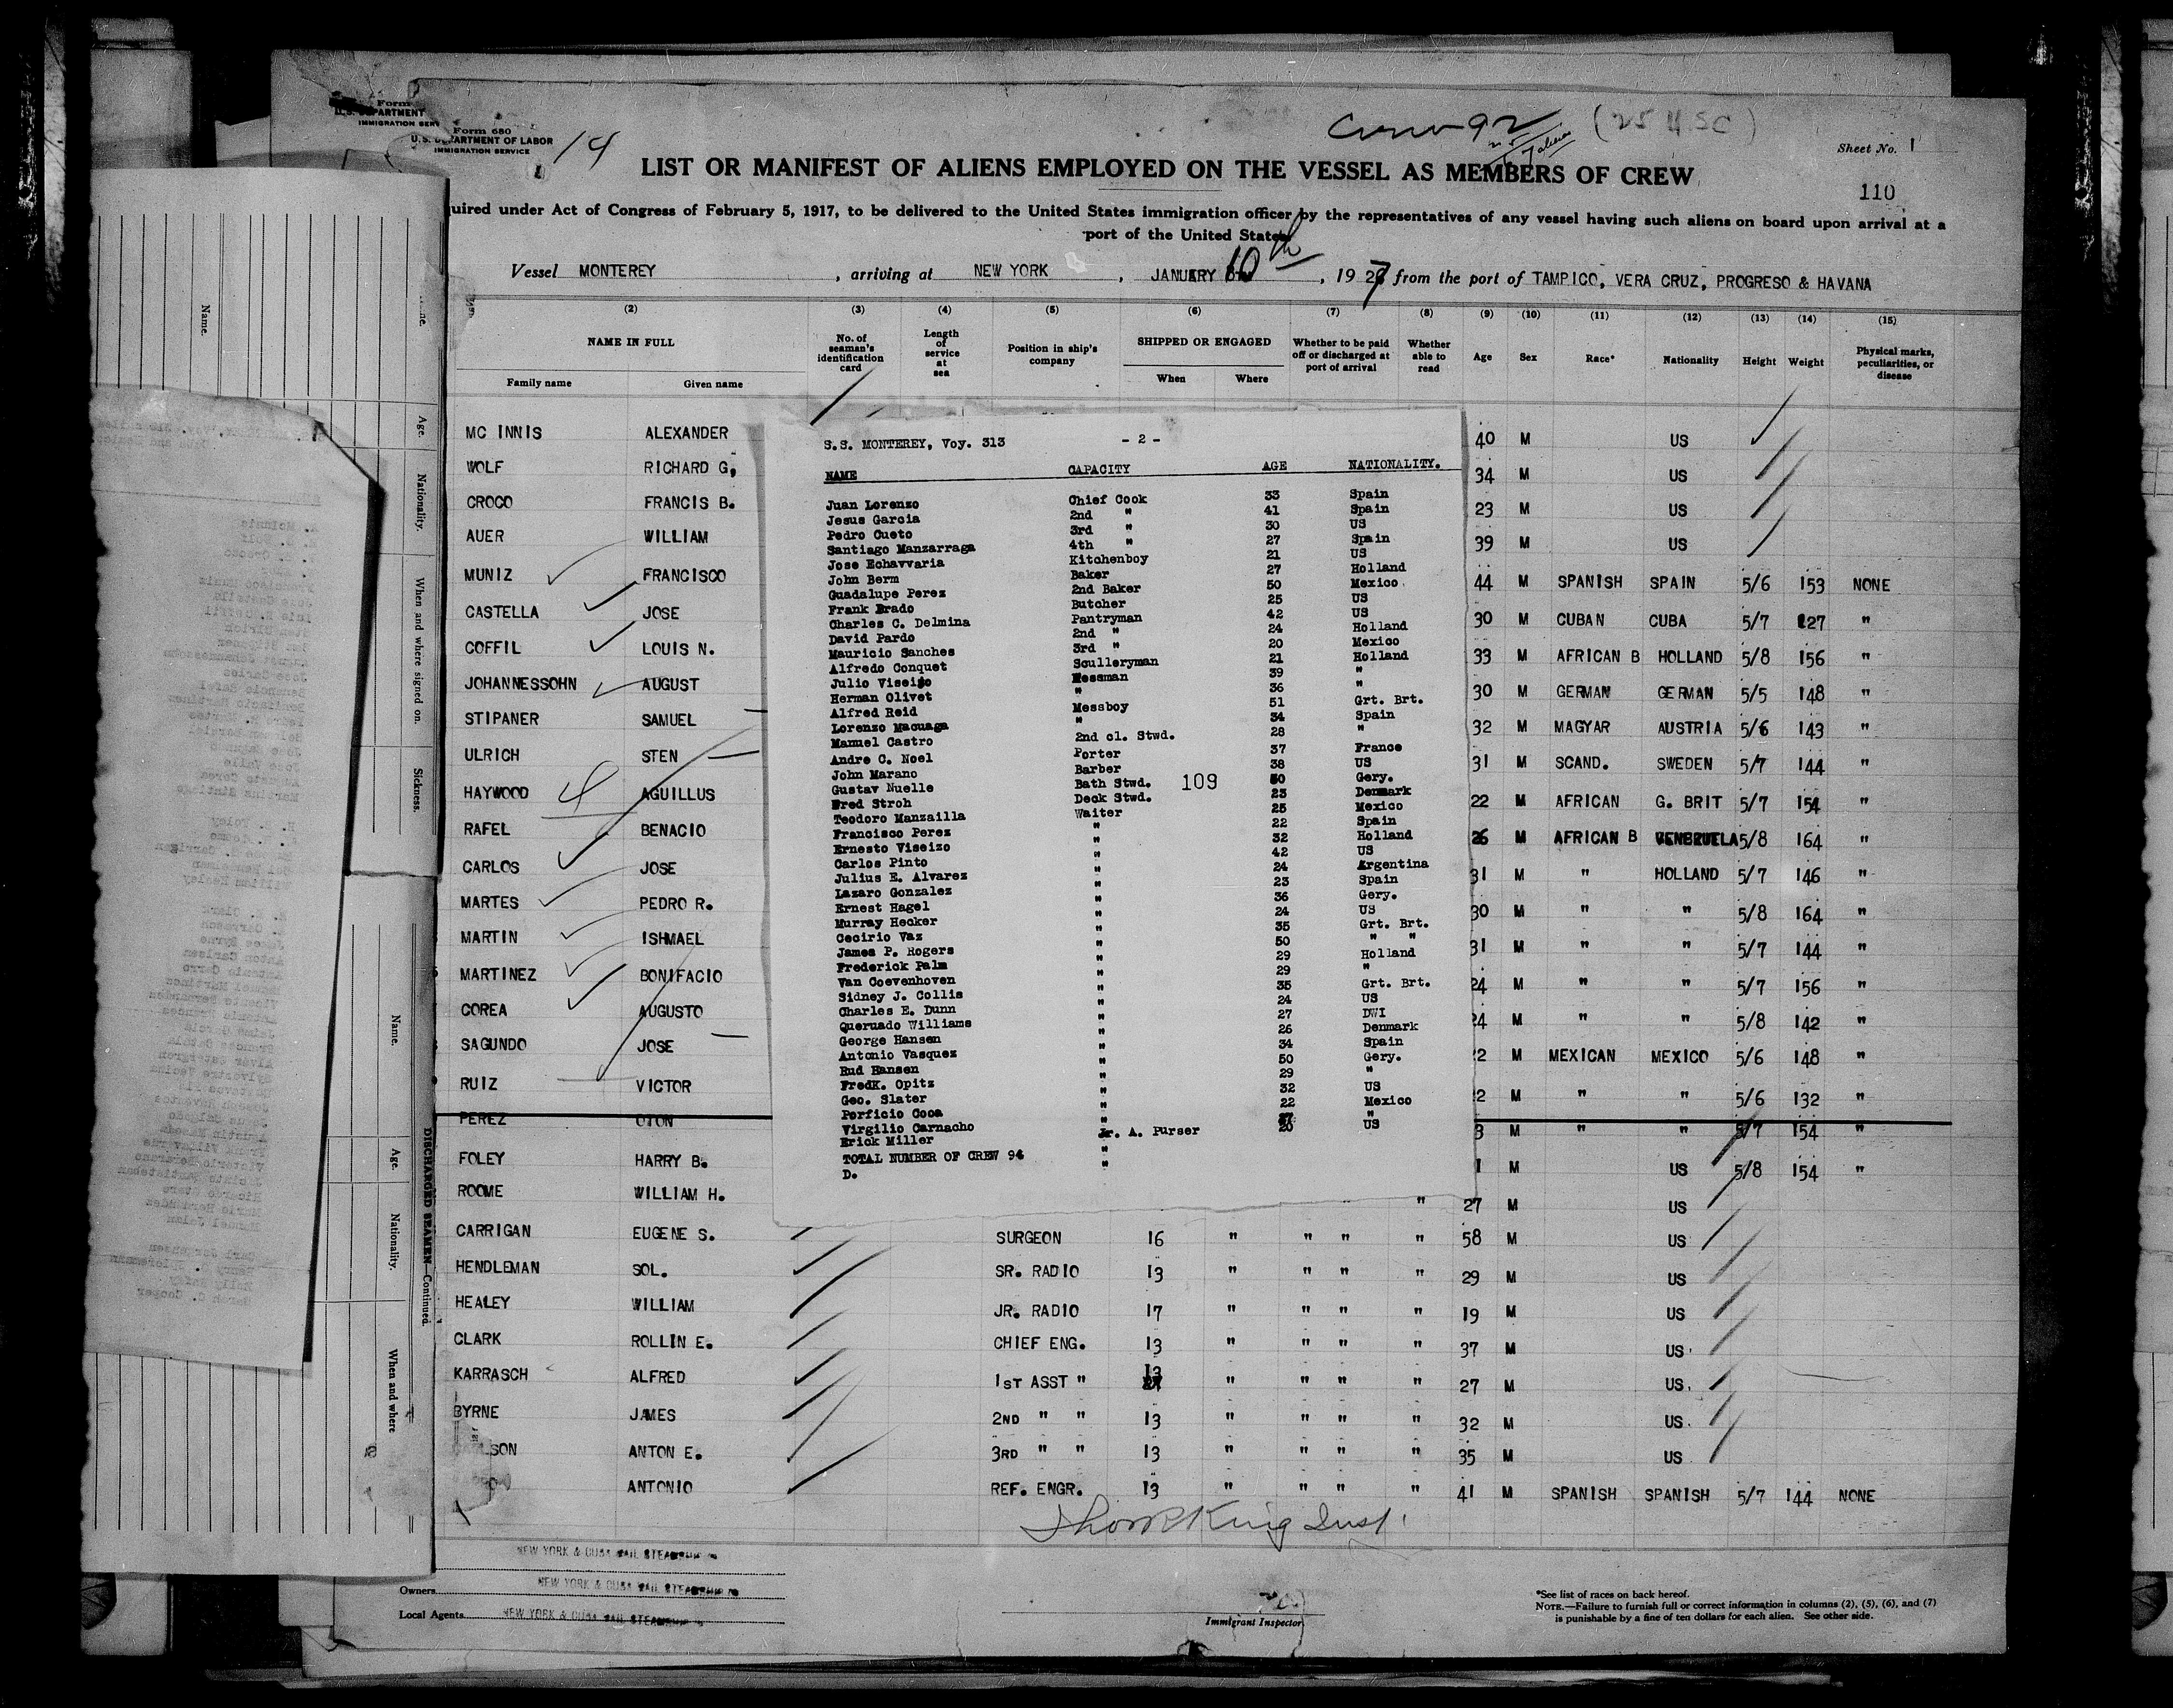 Form 680
U.S. DEPARTMENT OF LABOR
IMMIGRATION SERVICE
14
Crew 92
(25 USC)
Sheet No. 1
LIST OR MANIFEST OF ALIENS EMPLOYED ON THE VESSEL AS MEMBERS OF CREW
110
quired under Act of Congress of February 5, 1917, to be delivered to the United States immigration officer by the representatives of any vessel having such aliens on board upon arrival at a
port of the United States
Vessel MONTEREY, arriving at NEW YORK, JANUARY 10th, 1927 from the port of TAMPICO, VERA CRUZ, PROGRESO & HAVANA
(2) (3) (4) (5) (6) (7) (8) (9) (10) (11) (12) (13) (14) (15)
NAME IN FULL
Family name Given name
No. of seaman's identification card
Length of service at sea
Position in ship's company
SHIPPED OR ENGAGED
When Where
Whether to be paid off or discharged at port of arrival
Whether able to read
Age Sex Race* Nationality Height Weight
Physical marks, peculiarities, or disease
MC INNIS ALEXANDER 40 M US
WOLF RICHARD G. 34 M US
CROCO FRANCIS B. 23 M US
AUER WILLIAM 39 M US
MUNIZ FRANCISCO 44 M SPANISH SPAIN 5/6 153 NONE
CASTELLA JOSE 30 M CUBAN CUBA 5/7 127 "
COFFIL LOUIS N. 33 M AFRICAN B HOLLAND 5/8 156 "
JOHANNESSOHN AUGUST 30 M GERMAN GERMAN 5/5 148 "
STIPANER SAMUEL 32 M MAGYAR AUSTRIA 5/6 143 "
ULRICH STEN 31 M SCAND. SWEDEN 5/7 144 "
HAYWOOD AGUILLUS 22 M AFRICAN G. BRIT 5/7 154 "
RAFEL BENACIO 26 M AFRICAN B VENEZUELA 5/8 164 "
CARLOS JOSE 31 M " HOLLAND 5/7 146 "
MARTES PEDRO R. 30 M " " 5/8 164 "
MARTIN ISHMAEL 31 M " " 5/7 144 "
MARTINEZ BONIFACIO 24 M " " 5/7 156 "
COREA AUGUSTO 24 M " " 5/8 142 "
SAGUNDO JOSE 2 M MEXICAN MEXICO 5/6 148 "
RUIZ VICTOR 2 M " " 5/6 132 "
PEREZ OTON 3 M " " 5/7 154 "
FOLEY HARRY B. 1 M US 5/8 154 "
ROOME WILLIAM H. " 27 M US
CARRIGAN EUGENE S. SURGEON 16 " " " " 58 M US
HENDLEMAN SOL. SR. RADIO 13 " " " " 29 M US
HEALEY WILLIAM JR. RADIO 17 " " " " 19 M US
CLARK ROLLIN E. CHIEF ENG. 13 " " " " 37 M US
KARRASCH ALFRED 1ST ASST " 13 " " " " 27 M US
BYRNE JAMES 2ND " " 13 " " " " 32 M US
SON ANTON E. 3RD " " 13 " " " " 35 M US
ANTONIO REF. ENGR. 13 " " " " 41 M SPANISH SPANISH 5/7 144 NONE
S.S. MONTEREY, Voy. 313 - 2 -
NAME CAPACITY AGE NATIONALITY.
Juan Lorenzo Chief Cook 33 Spain
Jesus Garcia 2nd " 41 Spain
Pedro Cueto 3rd " 30 US
Santiago Manzarraga 4th " 27 Spain
Jose Echavvaria Kitchenboy 21 US
John Berm Baker 27 Holland
Guadalupe Perez 2nd Baker 50 Mexico
Frank Brado Butcher 25 US
Charles C. Delmina Pantryman 42 US
David Pardo 2nd " 24 Holland
Mauricio Sanches 3rd " 20 Mexico
Alfredo Conquet Sculleryman 21 Holland
Julio Viseizo Messman 39 "
Herman Olivet " 36 "
Alfred Reid Messboy 51 Grt. Brt.
Lorenzo Macuaga " 34 Spain
Manuel Castro 2nd cl. Stwd. 28 "
Andre C. Noel Porter 37 France
John Marano Barber 38 US
Gustav Nuelle Bath Stwd. 50 Gery.
109
Fred Stroh Deck Stwd. 23 Denmark
Teodoro Manzailla Waiter 25 Mexico
Francisco Perez " 22 Spain
Ernesto Viseizo " 32 Holland
Carlos Pinto " 42 US
Julius E. Alvarez " 24 Argentina
Lazaro Gonzalez " 23 Spain
Ernest Hagel " 36 Gery.
Murray Hecker " 24 US
Cecirio Vaz " 35 Grt. Brt.
James P. Rogers " 50 " "
Frederick Palm " 29 Holland
Van Coevenhoven " 29 "
Sidney J. Collis " 35 Grt. Brt.
Charles E. Dunn " 24 US
Queruado Williams " 27 DWI
George Hansen " 26 Denmark
Antonio Vasquez " 34 Spain
Rud Hansen " 50 Gery.
Fredk. Opitz " 29 "
Geo. Slater " 32 US
Porficio Cooa " 22 Mexico
Virgilio Carnacho " "
Erick Miller Jr. A. Purser 20 US
TOTAL NUMBER OF CREW 94
D.
NEW YORK & CUBA MAIL STEAMSHIP
Owners NEW YORK & CUBA MAIL STEAMSHIP
Local Agents NEW YORK & CUBA MAIL STEAMSHIP
Immigrant Inspector
*See list of races on back hereof.
NOTE.—Failure to furnish full or correct information in columns (2), (5), (6), and (7)
is punishable by a fine of ten dollars for each alien. See other side.
Name.
Age.
Nationality.
When and where signed on.
Sickness.
DISCHARGED SEAMEN—Continued.
Name.
Age.
Nationality.
When and where